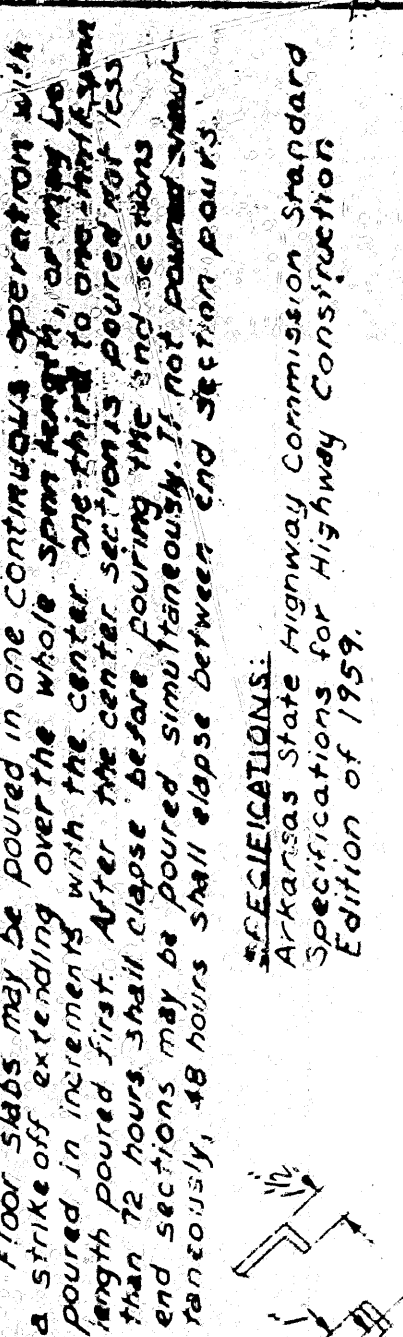 Floor slabs may be poured in one continuous operation with
a strike off extending over the whole span length, or may be
poured in increments with the center one third to one half span
length poured first. After the center section is poured not less
than 72 hours shall elapse before pouring the end sections
end sections may be poured simultaneously. If not poured simul-
taneously, 48 hours shall elapse between end section pours.
SPECIFICATIONS:
Arkansas State Highway Commission Standard
Specifications for Highway Construction
Edition of 1959.